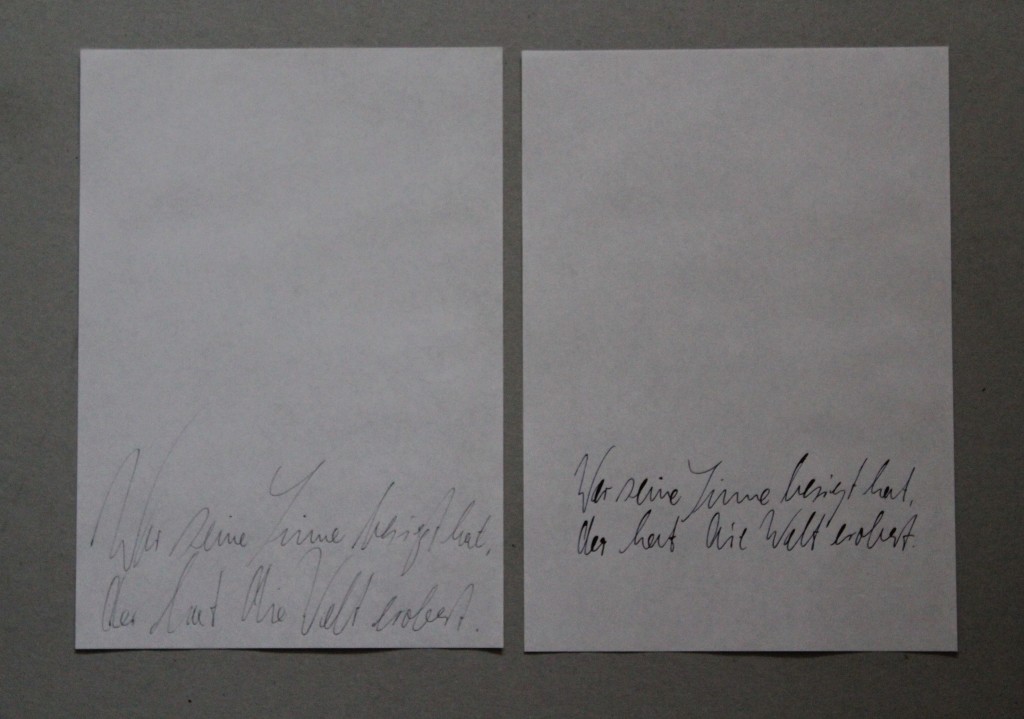 Wer seine Sinne besiegt hat,
der hat die Welt erobert.
Wer seine Sinne besiegt hat,
der hat die Welt erobert.